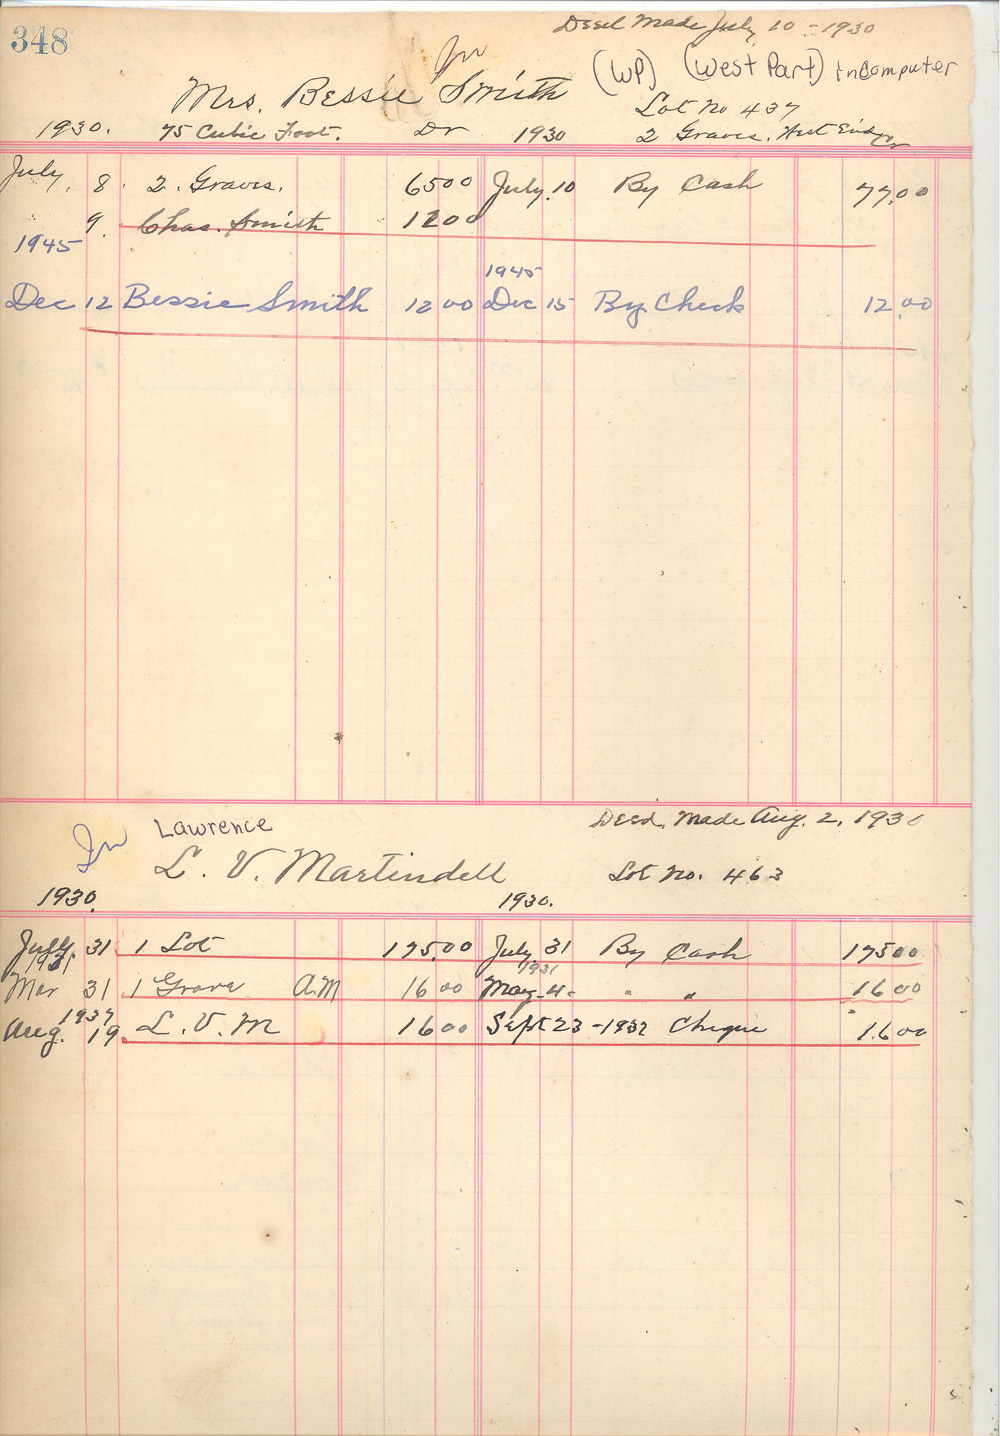 348
Deed Made July 10-1930
In
(WP) (West Part) in computer
Mrs. Bessie Smith
Lot No 437
1930. 75 Cubic Foot. Dr 1930 2 Graves. West End
July 8. 2. Graves. 6500 July. 10 By Cash 77.00
9. Chas. Smith 1200
1945
1945
Dec 12 Bessie Smith 12 00 Dec 15 By Check 12.00
In Lawrence Deed, Made Aug. 2, 1930
L. V. Martindell Lot No. 463
1930. 1930.
July. 31. 1 Lot 175.00 July. 31 By Cash 17500
1931 1931
Mar 31 1 Grave A.M 16 00 May. 4. " " 16 00
1937
Aug. 19. L. V. M 16 00 Sept 23-1937 Cheque 16 00